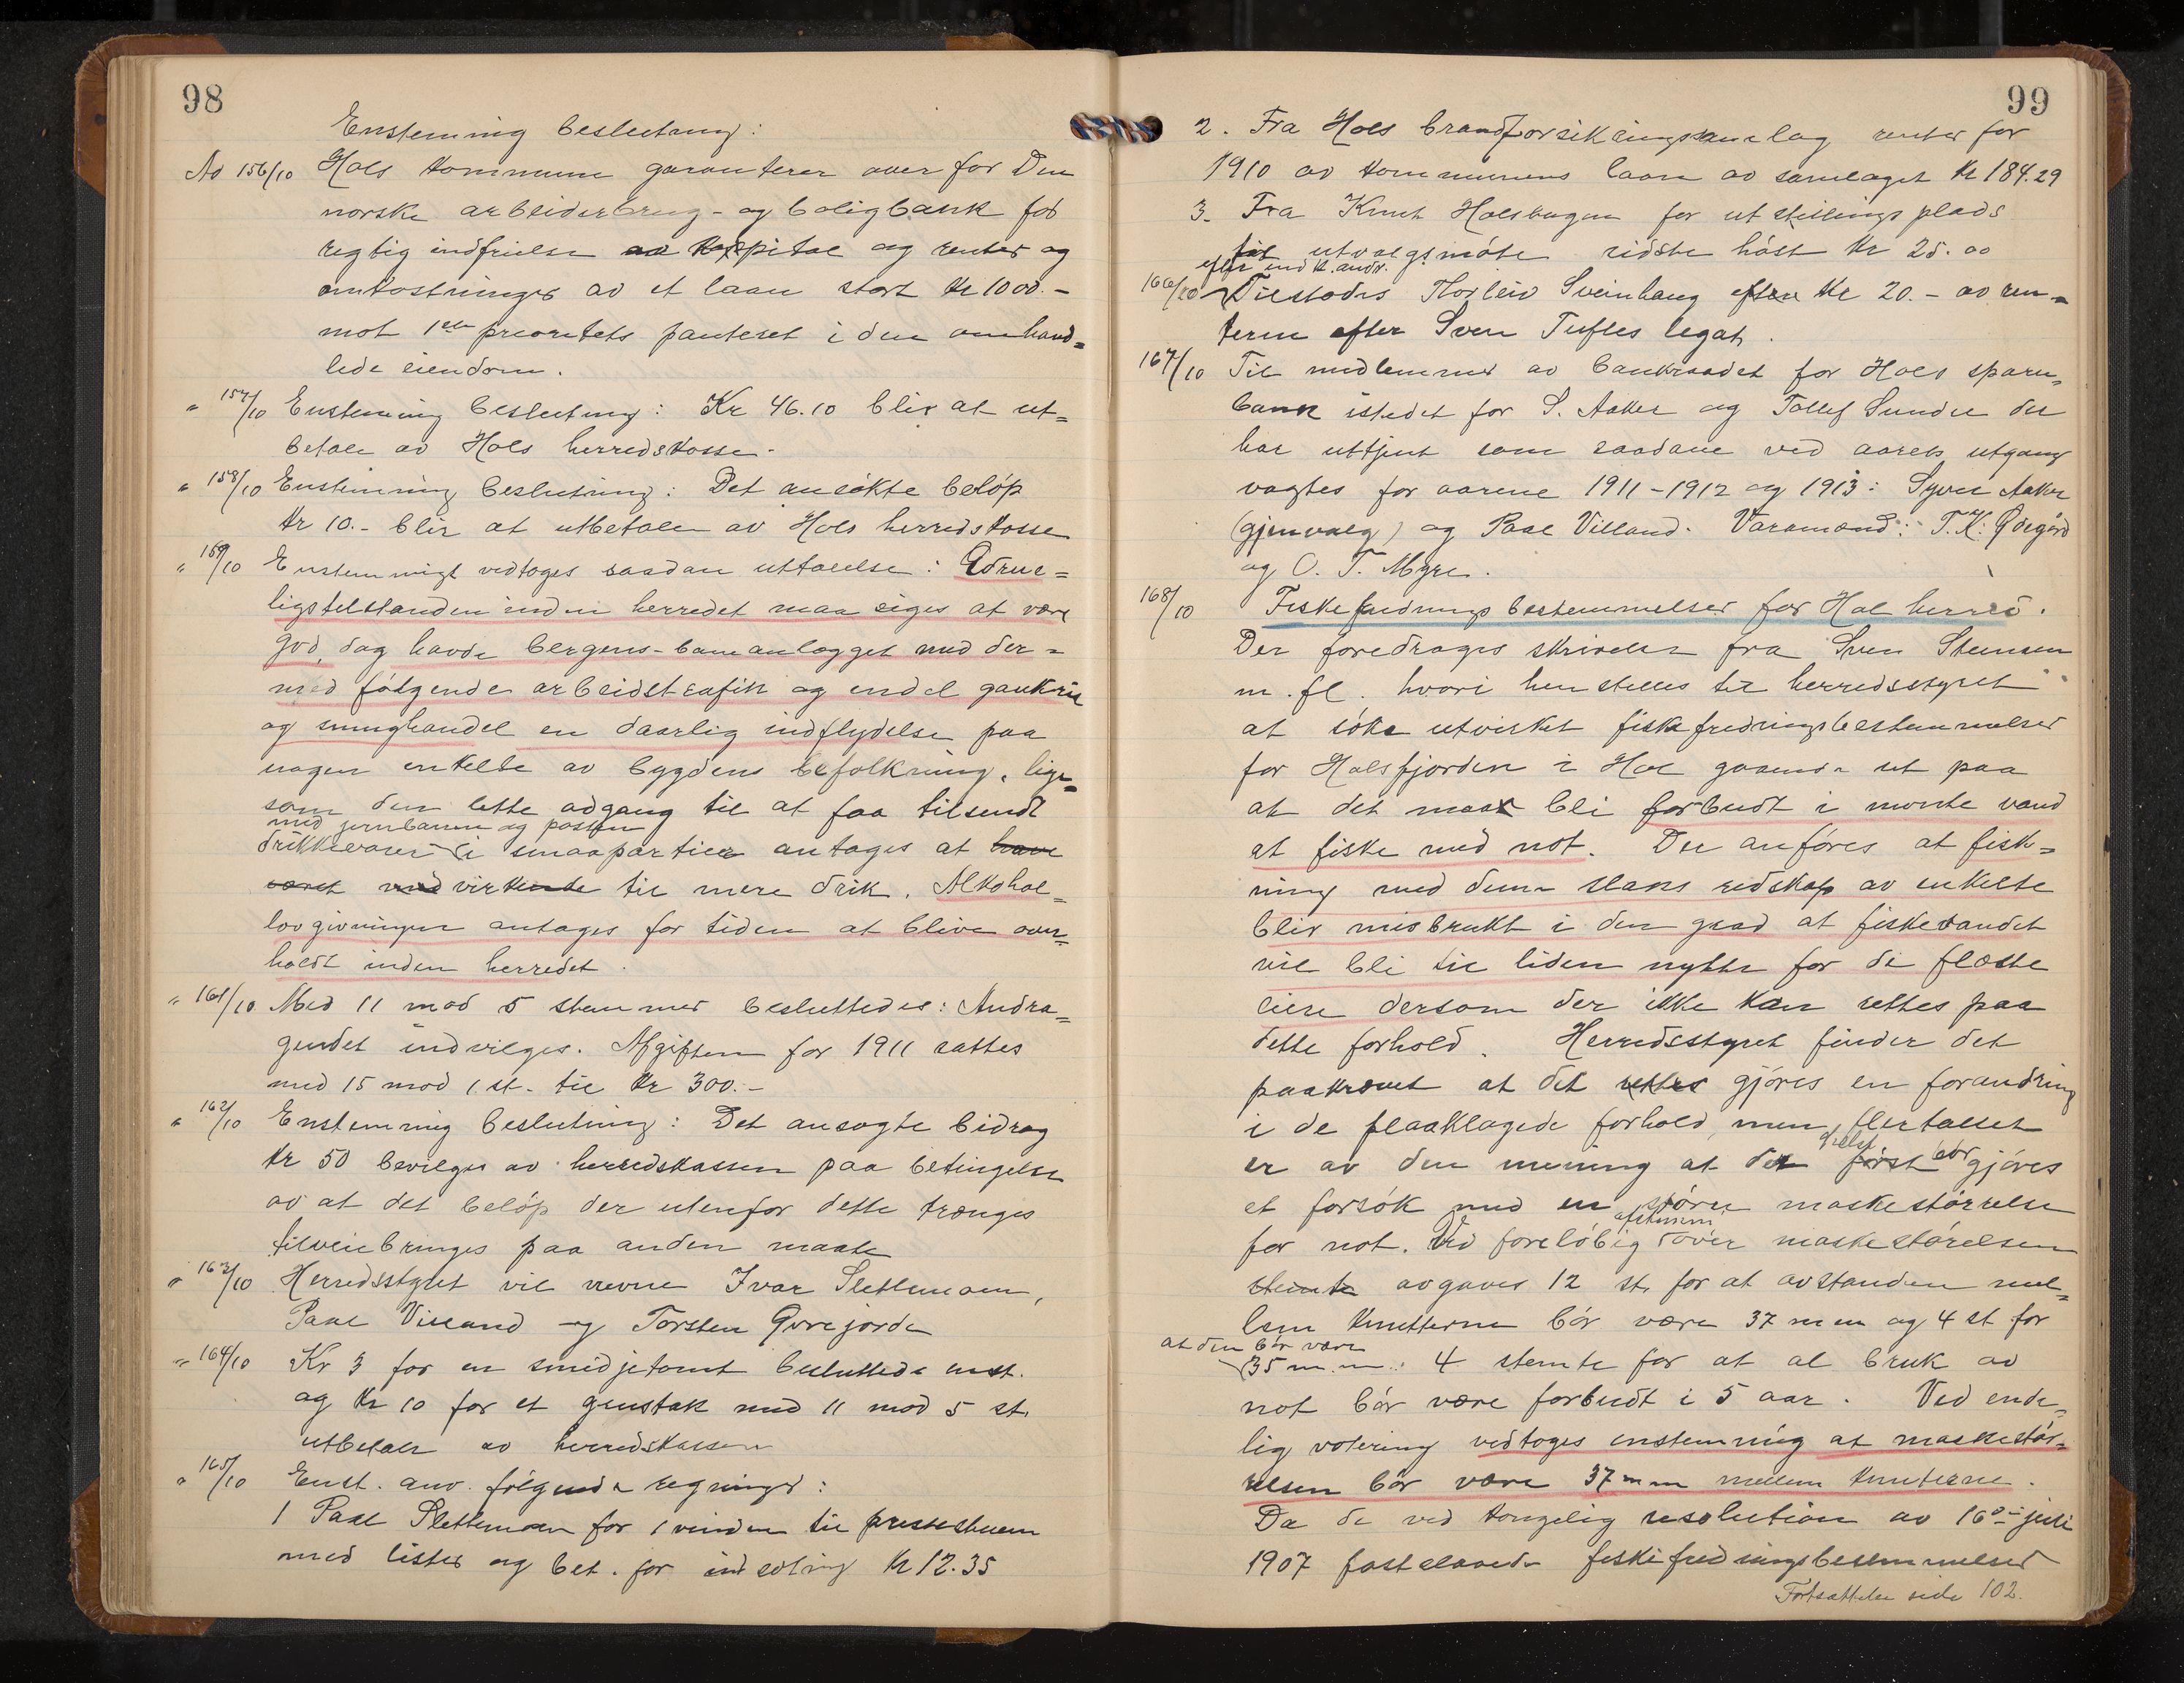 98
Enstemmig beslutning:
Ad 156/10 Hols kommune garanterer over for Den
norske arbeiderbrug- og boligbank for
rigtig indfrielse av kapital og renter og
omkostninger av et laan stort kr 1000.-
mot 1ste prioritets panteret i den omhand=
lede eiendom.
" 157/10 Enstemmig beslutning: Kr 46.10 blir at ut=
betale av Hols herredskasse.
" 158/10 Enstemmig beslutning: Det ansökte belöp
kr 10.- blir at utbetale av Hols herredskasse
" 159/10 Enstemmigt vedtoges saadan uttalelse: Ædrue=
ligstilstanden inden herredet maa siges at være
god, dog havde bergens-baneanlægget med der=
med fölgende arbeidstrafik og endel gaukeri
og smughandel en daarlig indflydelse paa
nogen enkelte av bygdens befolkning, lige=
som den lette adgang til at faa tilsendt
med jernbanen og posten
drikkevarer i smaapartier antages at have
været medvirkende til mere drik. Alkohol=
lovgivningen antages for tiden at blive over=
holdt inden herredet.
" 161/10 Med 11 mod 5 stemmer besluttedes: Andra=
gendet indvilges. Afgiften for 1911 sattes
med 15 mod 1 st. til kr 300.-
" 162/10 Enstemmig beslutning: Det ansøgte bidrag
kr 50 bevilges av herredskassen paa betingelse
av at det belöp der utenfor dette trænges
tilveiebringes paa anden maate
" 163/10 Herredsstyret vil nevne Ivar Slettemoen,
Paal Villand og Torsten Gurejorde
" 164/10 Kr 3 for en smidjetomt besluttede enst.
og kr 10 for et grustak med 11 mod 5 st.
utbetalt av herredskassen
" 165/10 Enst. anv. fölgende regninger:
1 Paal Slettemoen for 1 vindu til prestestuen
med lister og bet. for indsetning kr 12.35
99
2. Fra Hols brandforsikringssamlag renter for
1910 av kommunens laan av samlaget kr 184.29
3. Fra Knut Holshagen for utstillingsplads
til utvalgsmöte sidste höst kr 25.00
efter ind k. andr.
166/10 Tilstodes Thorleiv Sveinhaug efter kr 20.- av ren=
terne efter Sven Tufles legat.
167/10 Til medlemmer av bankraadet for Hols spare=
bank istedet for S. Aaker og Tollef Sundre der
har uttjent som saadane ved aarets utgang
vagtes for aarene 1911-1912 og 1913: Syver Aaker
(gjenvalg) og Paal Villand. Varamænd: T. K. Ödegård
og O. T. Myre.
168/10 Fiskefredningsbestemmelser for Hol herred.
Der foredroges skrivelse fra Sven Stensen
m.fl. hvori henstilles til herredsstyret
at söke utvirket fiskefredningsbestemmelser
for Holsfjorden i Hol gaaende ut paa
at det maa bli forbudt i nevnte vand
at fiske med not. Der anföres at fisk=
ning med denne slags redskap av enkelte
blir misbrukt i den grad at fiskevandet
vil bli til liden nytte for de fleste
eiere dersom der ikke kan rettes paa
dette forhold. Herredsstyret finder det
paakrævet at det rettes gjöres en forandring
i de paaklagede forhold, men flertallet
er av den mening at der först bör gjöres
et forsök med en större maskestörrelse
afstemn
for not. Ved forelöbig over maskestörelsen
stemte avgaves 12 st. for at avstanden mel=
lem knutterne bör være 37 mm og 4 st for
at den bör være
35 m.m.: 4 stemte for at al bruk av
not bör være forbudt i 5 aar. Ved ende=
lig votering vedtoges enstemmig at maskestör=
relsen bör være 37 mm mellem knuterne.
Da de ved kongelig resolution av 16de juli
1907 fastslaaede fiskefredningsbestemmelser
Fortsættelse side 102.